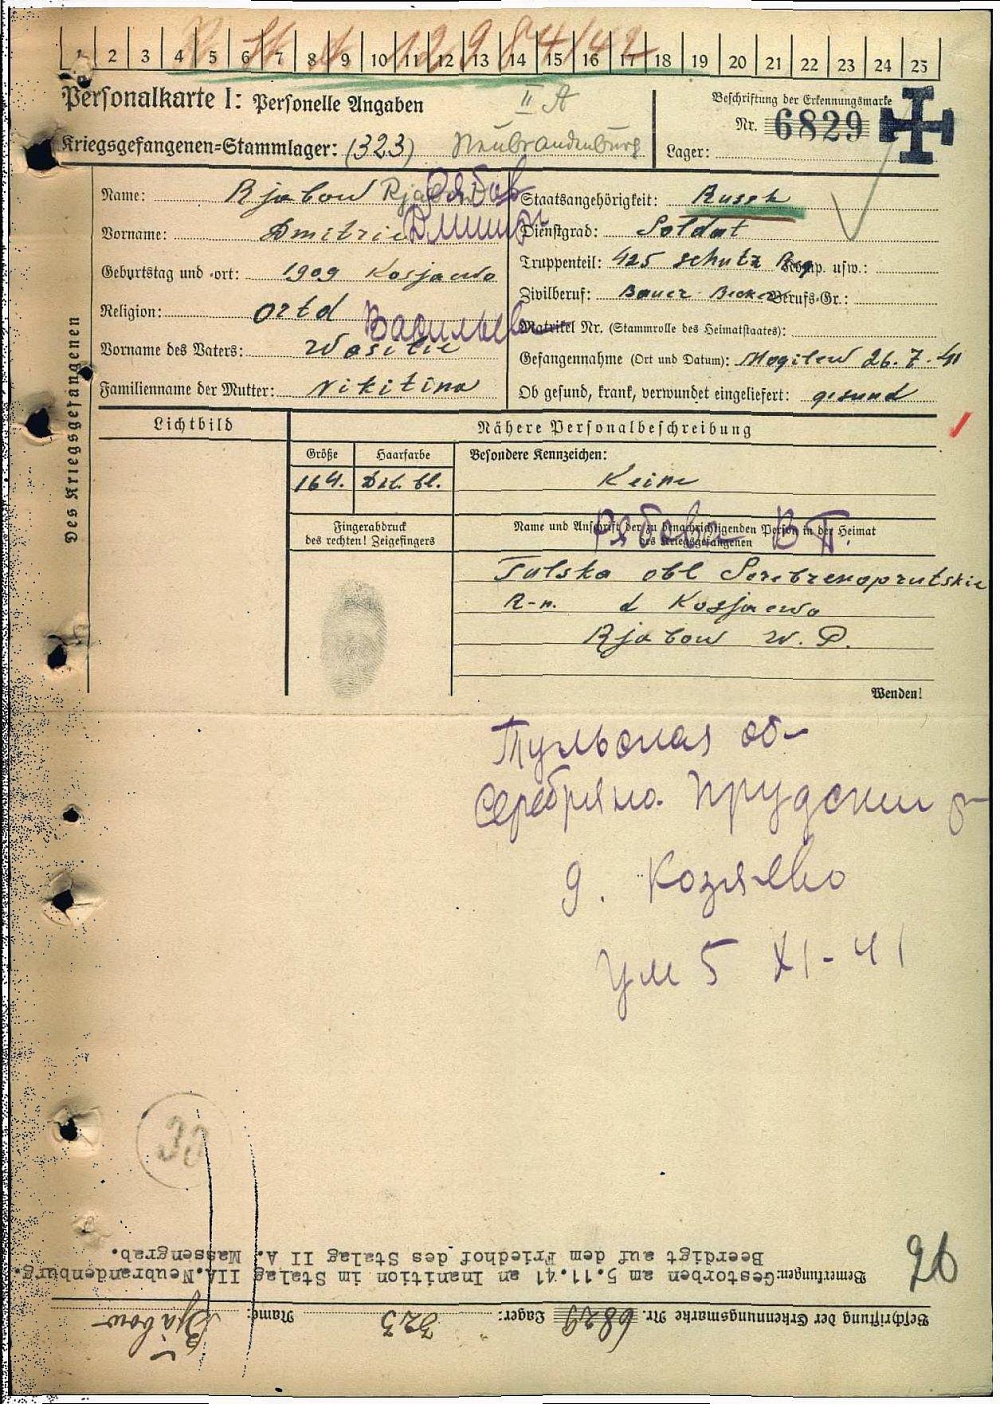 1 2 3 4 5 6 7 8 9 10 11 12 13 14 15 16 17 18 19 20 21 22 23 24 25
Personalkarte I: Personelle Angaben
II A
Kriegsgefangenen=Stammlager: (323) Neubrandenburg
Beschriftung der Erkennungsmarke
Nr. 6829
Lager:
Des Kriegsgefangenen
Name: Rjabow Рябов
Vorname: Dmitrie Дмитрий
Geburtstag und =ort: 1909 Kosjaewo
Religion: ortd
Васильев
Vorname des Vaters: Wasilie
Familienname der Mutter: Nikitina
Staatsangehörigkeit: Russh
Dienstgrad: Soldat
Truppenteil: 425 schutz Reg Komp. usw.:
Zivilberuf: Bauer Becker Berufs=Gr.:
Matrikel Nr. (Stammrolle des Heimatstaates):
Gefangennahme (Ort und Datum): Mogilew 26.7.41
Ob gesund, krank, verwundet eingeliefert: gesund
Lichtbild
Nähere Personalbeschreibung
Größe Haarfarbe Besondere Kennzeichen:
164. Dkl. bl. Keine
Fingerabdruck
des rechten! Zeigefingers
Name und Anschrift der zu benachrichtigenden Person in der Heimat
des Kriegsgefangenen
Рябова В П.
Tulska obl Serebrenoprutskie
R-n. d Kosjaewo
Rjabow W. P.
Wenden!
Тульская об-
Серебряно. Прудский р-
д. Козяево
ум 5 XI-41
26
Bemerkungen: Gestorben am 5.11.41 an Inanition im Stalag IIA. Neubrandenburg.
Beerdigt auf dem Friedhof des Stalag II A. Massengrab.
Beschriftung der Erkennungsmarke Nr. 6829 Lager: 323 Name: Rjabow